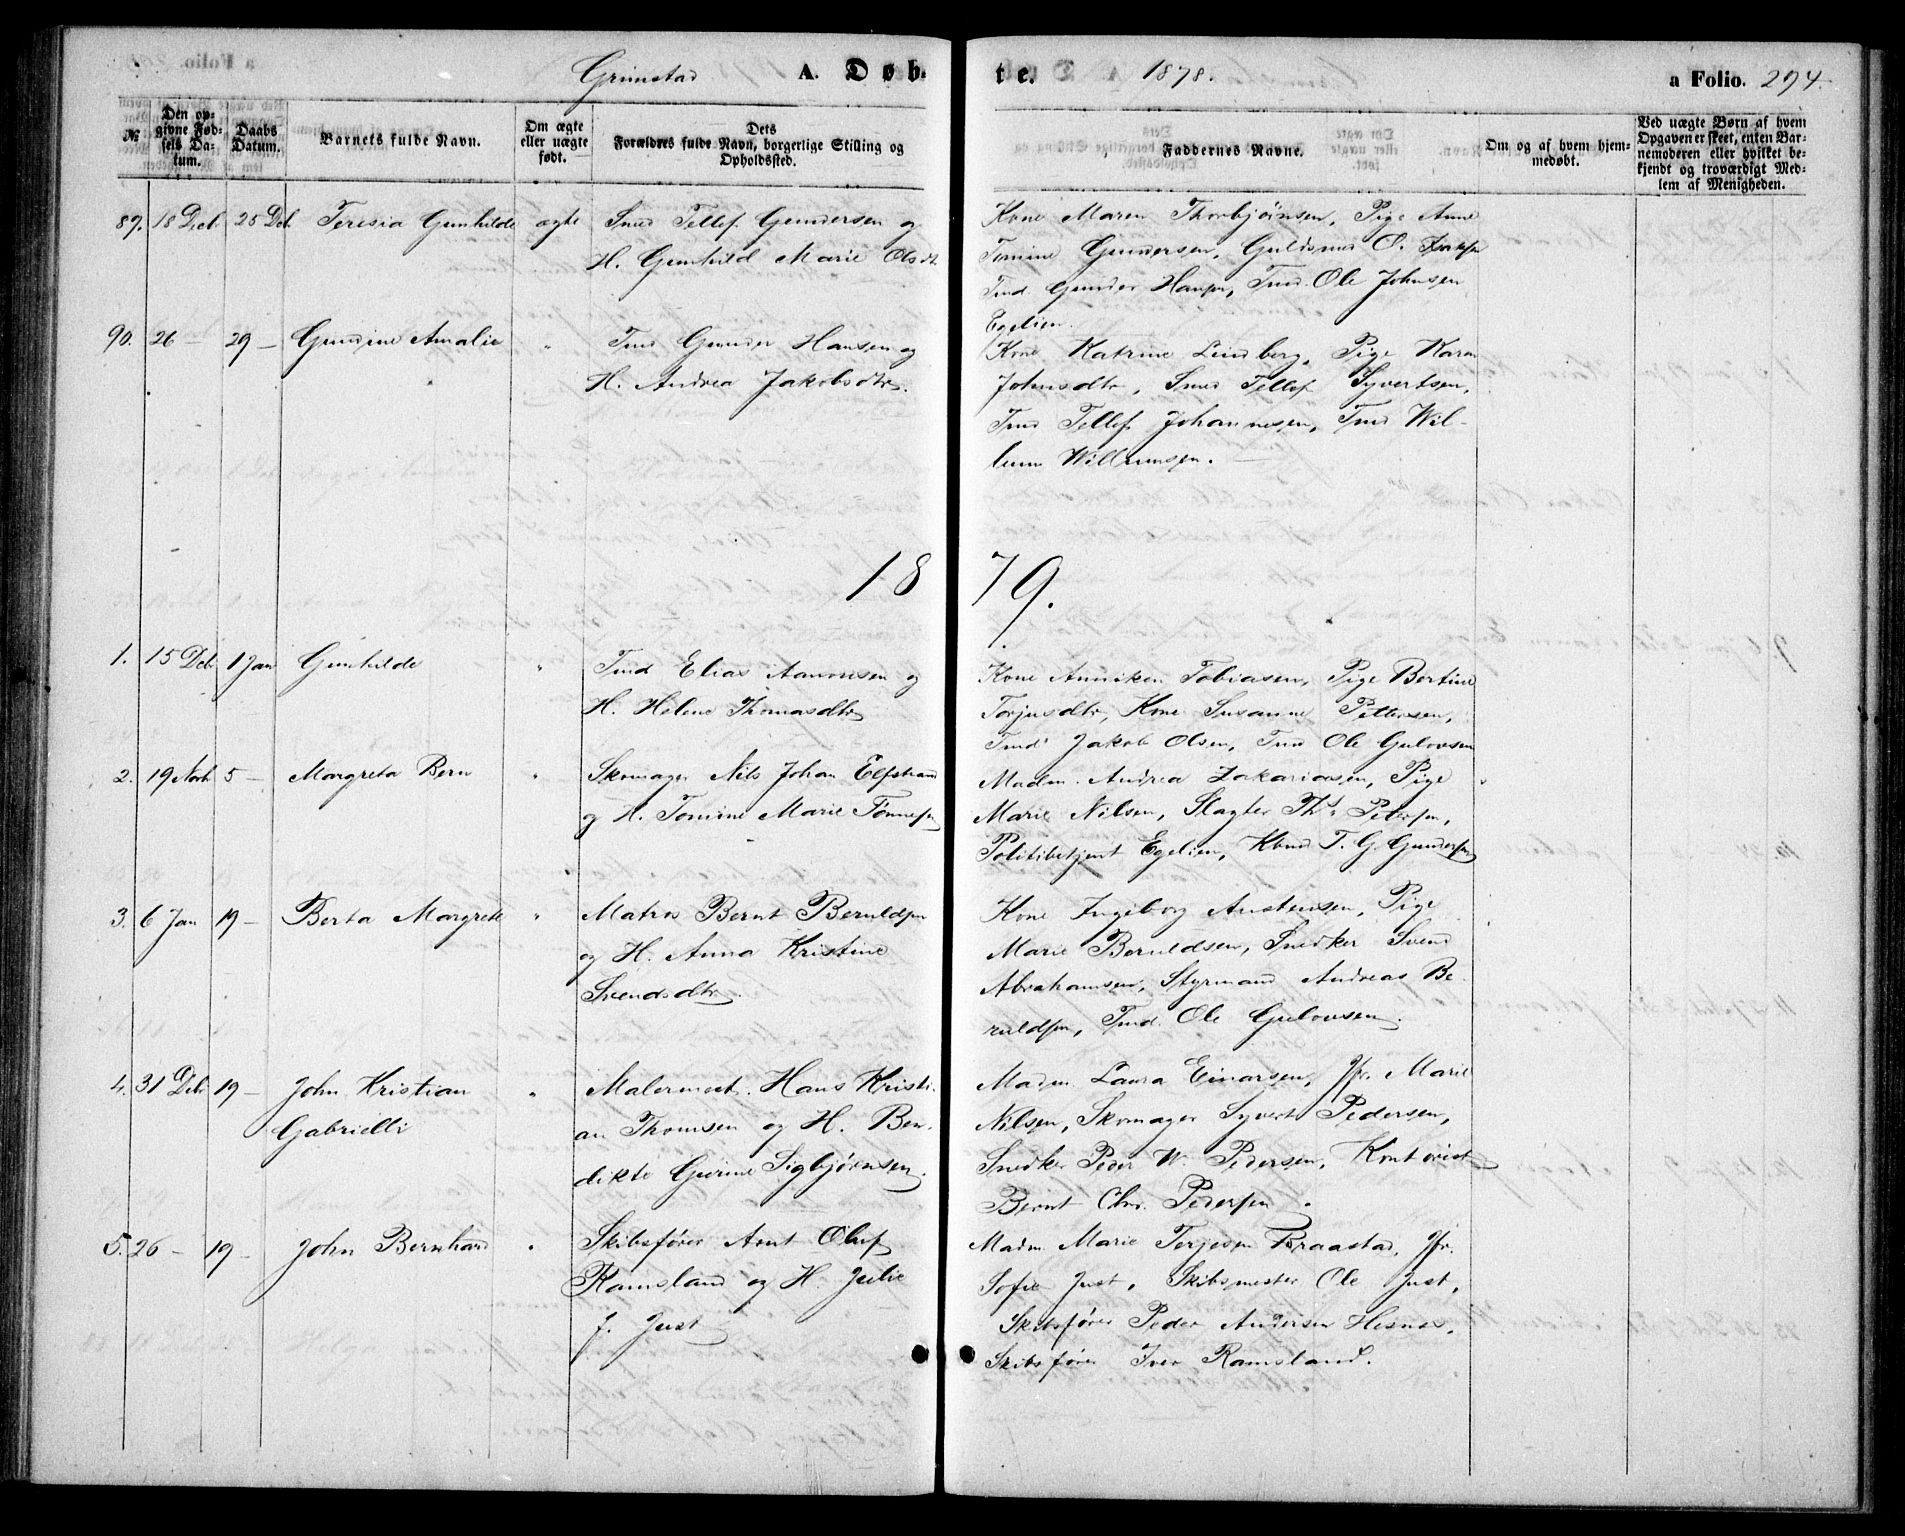 Grimstad A. Døbte. 1878. a Folio. 294.
№
Den opgivne Fødsels Datum.
Daabs Datum.
Barnets fulde Navn.
Om ægte eller uægte født.
Dets Forældres fulde Navn, borgerlige Stilling og Opholdssted.
Faddernes Navne.
Om og af hvem hjemmedøbt.
Ved uægte Børn af hvem Opgaven er skeet, enten Barnemoderen eller hvilket bekjendt og troværdigt Medlem af Menigheden.
89. 18 Deb. 25 Deb. Teresia Gunhilde ægte Smed Tellef Gundersen og
H. Gunhild Marie Olsdtr
Kone Maren Thorbjörnsen, Pige Anne
Tomine Gundersen, Guldsmed O.
Tmd. Gunder Hansen, Tmd. Ole Johnsen
Egelien.
90. 26 — 29 — Gundine Amalie " Tmd Gunder Hansen og
H. Andrea Jakobsdtr.
Kone Katrine Lindberg, Pige Karen
Johnsdtr, Smed Tellef Syvertsen,
Tmd Tellef Johannesen, Tmd Wil-
lum Willumsen.
1879.
1. 15 Deb 1 Jan Gunhilde " Tmd Elias Aanonsen og
H. Helene Thomasdtr
Kone Anniken Tobiasen, Pige Bertine
Torjusdtr, Kone Susanne Pettersen,
Tmd Jakob Olsen, Tmd Ole Gulovsen
2. 19 Novb 5 — Margreta Bern " Skomager Nils Johan Elfstrand
og H. Tomine Marie Tönnesen
Madm. Andrea Zakariasen, Pige
Marie Nilsen, Slagter Ths. Petersen,
Politibetjent Egelien, Kbmd T. G. Gundersen
3. 6 Jan 19 — Berta Margrete " Matros Bernt Beruldsen
og H. Anna Kristine
Svendsdtr.
Kone Ingeborg Austensen, Pige
Marie Beruldsen, Snedker Svend
Abrahamsen, Styrmand Andreas Be-
ruldsen, Tmd. Ole Gulovsen.
4. 31 Deb 19 — John Kristian
Gabrielli " Malermest. Hans Kristi-
an Thomsen og H. Ben-
dikte Gurine Sigbjørnsen.
Madm Laura Einarsen, Jfr. Marie
Nilsen, Skomager Syvert Pedersen,
Snedker Peder W. Pedersen, Kontorist
Bernt Chr. Pedersen.
5. 26 — 19 — John Bernhard " Skibsfører Arnt Oluf
Ramsland og H. Julie
J. Just
Madm Marie Terjesen Braastad, Jfr.
Sofie Just, Skibsmester Ole Just,
Skibsfører Peder Andersen Hesnes,
Skibsfører Iver Ramsland.